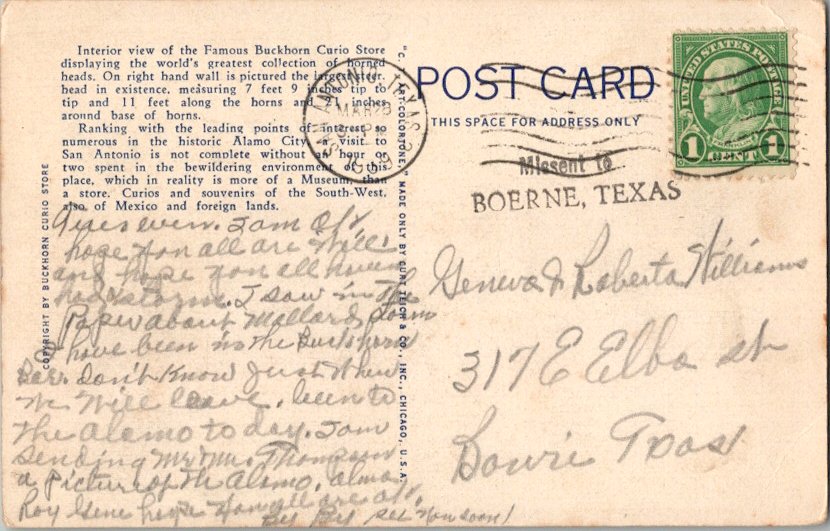 Interior view of the Famous Buckhorn Curio Store
displaying the world's greatest collection of horned
heads. On right hand wall is pictured the largest steer
head in existence, measuring 7 feet 9 inches tip to
tip and 11 feet along the horns and 21 inches
around base of horns.
Ranking with the leading points of interest so
numerous in the historic Alamo City, a visit to
San Antonio is not complete without an hour or
two spent in the bewildering environment of this
place, which in reality is more of a Museum, than
a store. Curios and souvenirs of the South-West,
also of Mexico and foreign lands.
COPYRIGHT BY BUCKHORN CURIO STORE
even. I am OK
hope you all are Well
and hope you all haven
had storm. I saw in the
Paper about storm
I have been in the Buckhorn
Bar. Don't Know Just When
We Will leave. been to
the Alamo to day. I am
sending Mr Mrs. Thompson
a Picture of th Alamo.
Roy Gene hope you all are OK.
By By see you soon!
"C. T. ART-COLORTONE" MADE ONLY BY CURT TEICH & CO., INC., CHICAGO, U.S.A.
POST CARD
THIS SPACE FOR ADDRESS ONLY
SAN ANTONIO TEXAS
MAR 28
PM
UNITED STATES POSTAGE
1 CENT 1
Missent to
BOERNE, TEXAS
Geneva & Roberta Williams
317 E Elba st
Bowie Texas